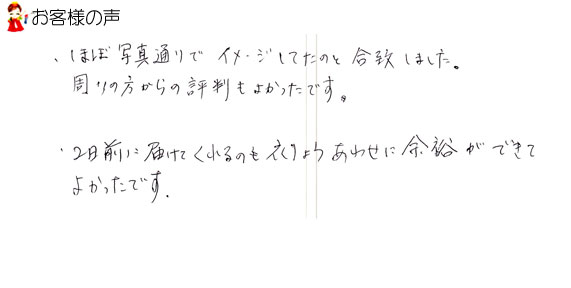 お客様の声
・ほぼ写真通りで イメージしてたのと 合致しました。
周りの方からの評判もよかったです。
・2日前に届けてくれるのも あわせに余裕ができて
よかったです.